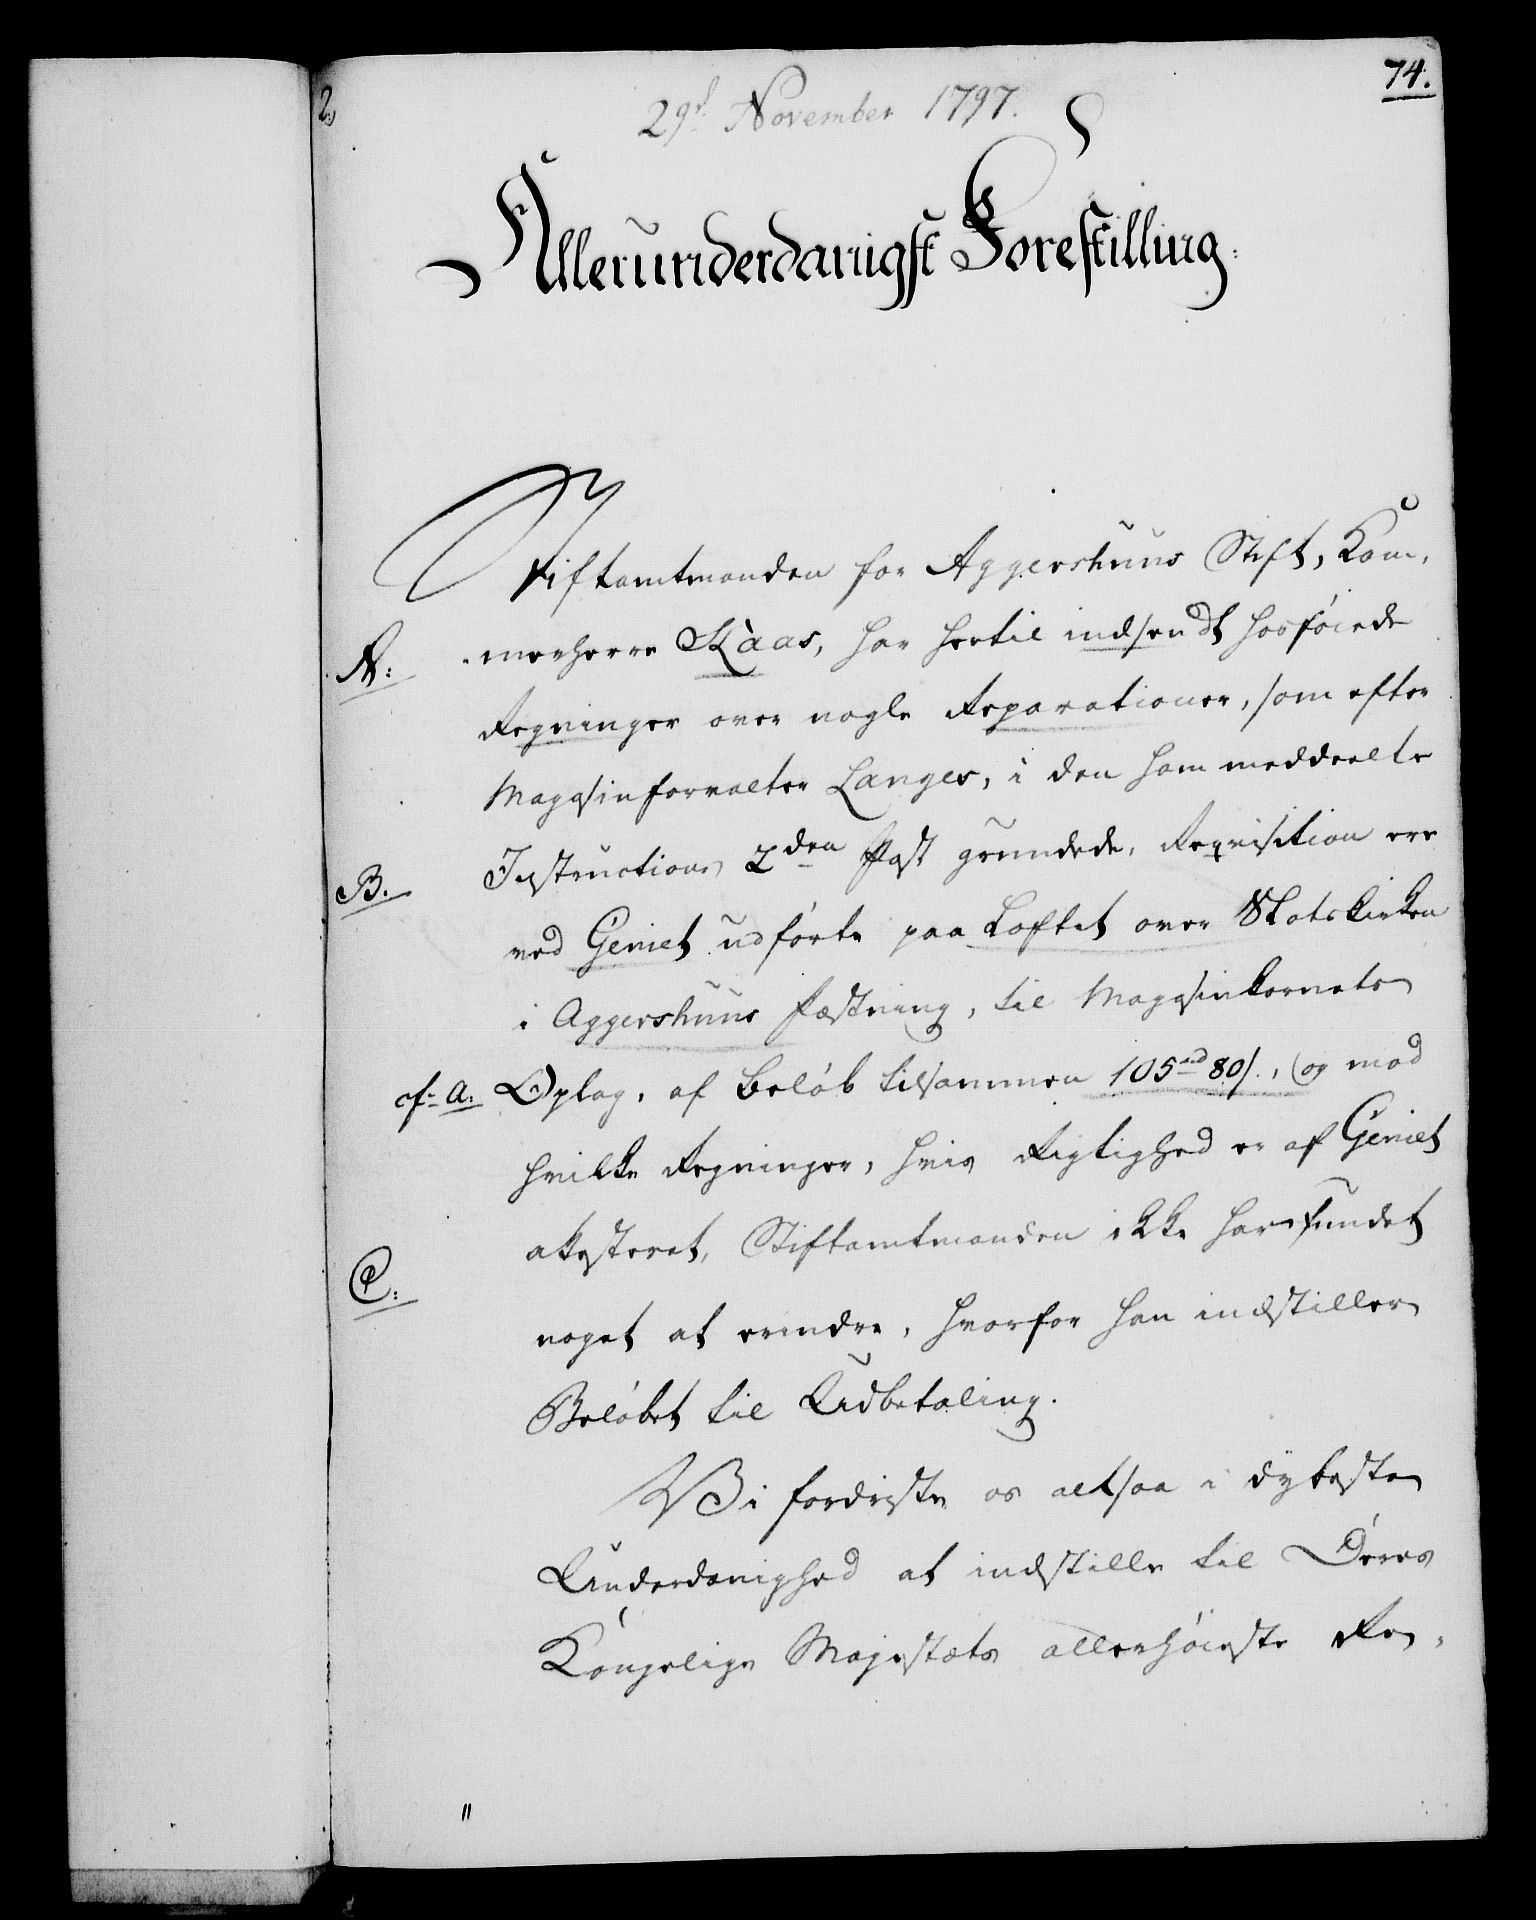 74.
2.
29d November 1797.
Allerunderdanigst Forestilling.
Stiftamtmanden for Aggershuus Stift, Kam-
A: merherre Kaas, har hertil indsendt hosföiede
Regninger over nogle Reparationer, som efter
Magasinforvalter Langes, i den ham meddeelte
B. Instructions 2den Post grundede, Requisition ere
ved Geniet udförte paa Loftet over Slotskirken
i Aggershuus Fæstning, til Magasinkornets
cf. A. Oplag, af Beløb tilsammen 105 rd 80 s., og mod
hvilke Regninger, hvis Rigtighed er af Geniet
attesteret, Stiftamtmanden ikke har fundet
C. noget at erindre, hvorfor han indstiller
Belöbet til Udbetaling.
Vi fordriste os altsaa i dybeste
Underdanighed at indstille til Deres
Kongelige Majestæts allerhöieste Re-